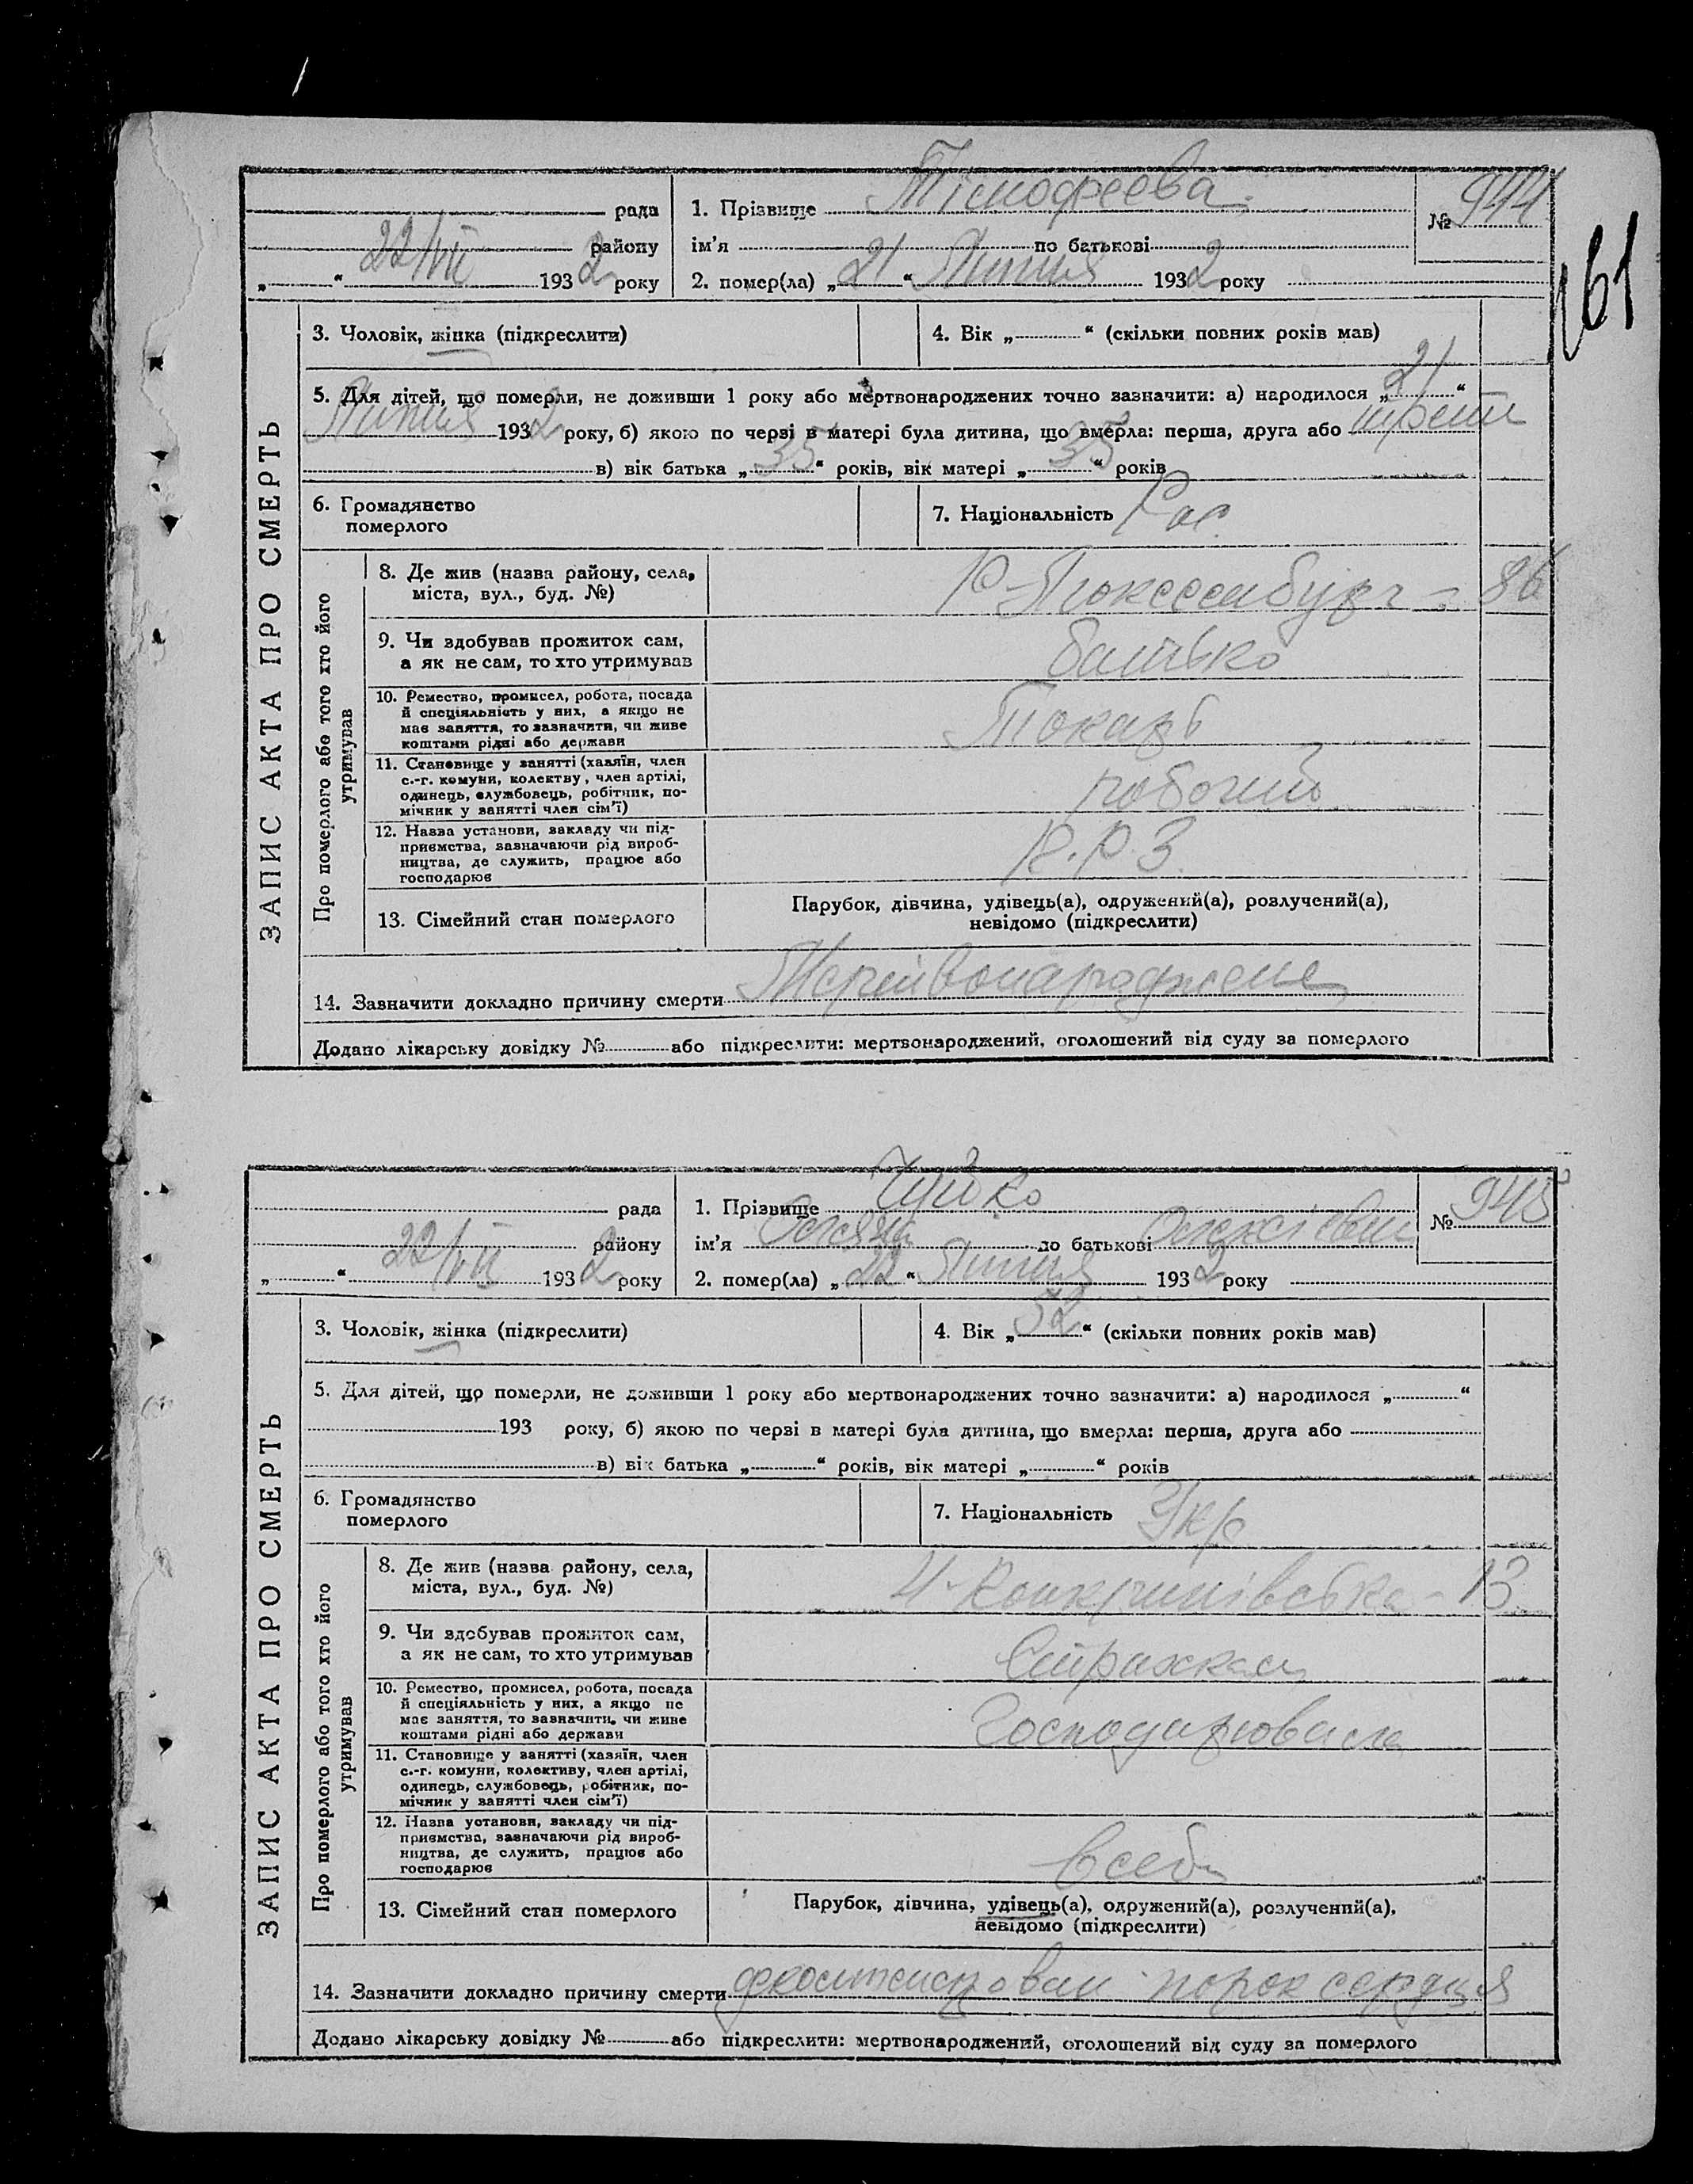 Тімофеева
рада 1. Прізвище № 944
району ім'я по батькові
161
„ “ 22/VII 1932 року 2. помер(ла) „21“ Липня 1932 року
3. Чоловік, жінка (підкреслити) 4. Вік „ “ (скільки повних років мав)
5. Для дітей, що померли, не доживши 1 року або мертвонароджених точно зазначити: а) народилося „21“
Липня 1932 року, б) якою по черзі в матері була дитина, що вмерла: перша, друга або
в) вік батька „35“ років, вік матері „35“ років
6. Громадянство 7. Національність Рос.
померлого
8. Де жив (назва району, села, Р-Люксембург - 86
міста, вул., буд. №)
9. Чи здобував прожиток сам, батько
а як не сам, то хто утримував
10. Ремество, промисел, робота, посада Токарь
й специяльність у них, а якщо не
має заняття, то зазначити, чи живе
коштами рідні або держави
11. Становище у занятті (хазяїн, член робочий
с.-г. комуни, колектву, член артілі,
одинець, службовець, робітник, по-
мічник у занятті член сім'ї)
12. Назва установи, закладу чи під- П.Р.З.
приємства, зазначаючи рід вироб-
ництва, де служить, працює або
господарює
13. Сімейний стан померлого Парубок, дівчина, удівець(а), одружений(а), розлучений(а),
невідомо (підкреслити)
14. Зазначити докладно причину смерти Мертвонароджене
Додано лікарську довідку № або підкреслити: мертвонароджений, оголошений від суду за померлого
ЗАПИС АКТА ПРО СМЕРТЬ
Про померлого або того хто його
утримував
Чуйко
рада 1. Прізвище № 945
району ім'я по батькові
„ “ 22/VII 1932 року 2. помер(ла) „22“ Липня 1932 року
3. Чоловік, жінка (підкреслити) 4. Вік „52“ (скільки повних років мав)
5. Для дітей, що померли, не доживши 1 року або мертвонароджених точно зазначити: а) народилося „ “
193 року, б) якою по черзі в матері була дитина, що вмерла: перша, друга або
в) вік батька „ “ років, вік матері „ “ років
6. Громадянство 7. Національність Укр.
померлого
8. Де жив (назва району, села, - 13
міста, вул., буд. №)
9. Чи здобував прожиток сам,
а як не сам, то хто утримував
10. Ремество, промисел, робота, посада Господарювала
й специяльність у них, а якщо не
має заняття, то зазначити, чи живе
коштами рідні або держави
11. Становище у занятті (хазяїн, член
с.-г. комуни, колективу, член артілі,
одинець, службовець, робітник, по-
мічник у занятті член сім'ї)
12. Назва установи, закладу чи під- в себе
приємства, зазначаючи рід вироб-
ництва, де служить, працює або
господарює
13. Сімейний стан померлого Парубок, дівчина, удівець(а), одружений(а), розлучений(а),
невідомо (підкреслити)
14. Зазначити докладно причину смерти порок сердця
Додано лікарську довідку № або підкреслити: мертвонароджений, оголошений від суду за померлого
ЗАПИС АКТА ПРО СМЕРТЬ
Про померлого або того хто його
утримував